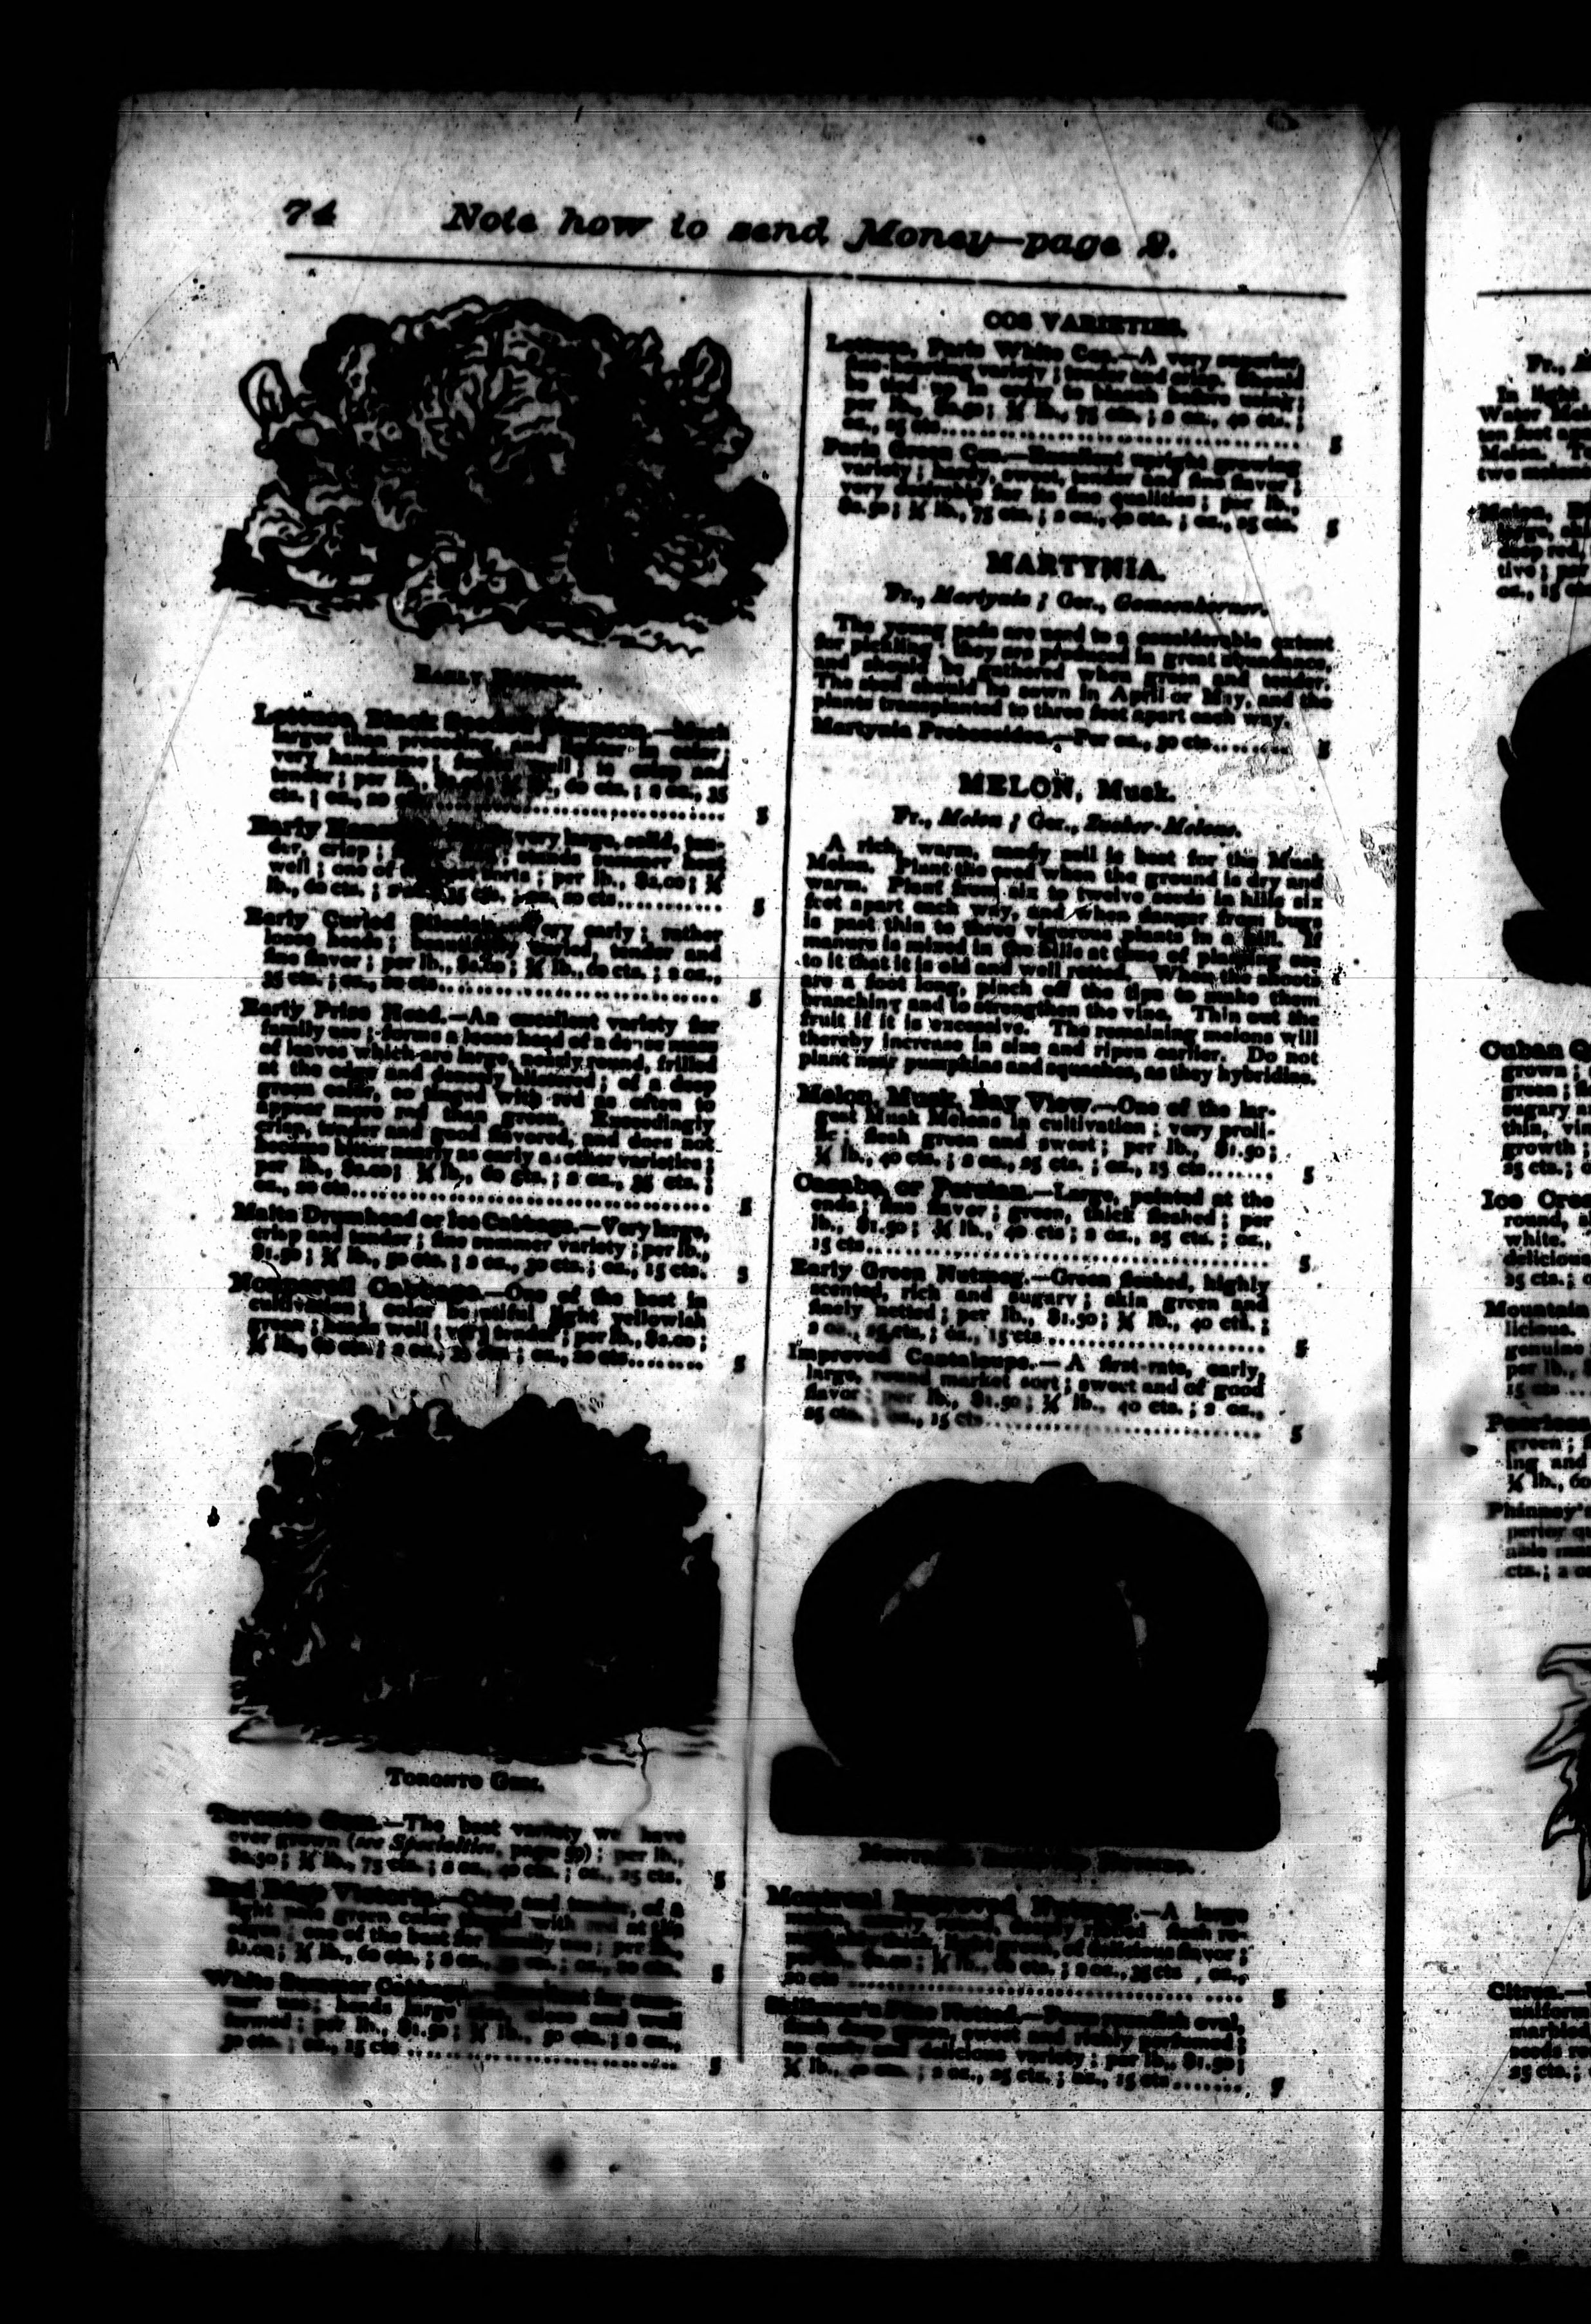 74 Note how to send Money—page 2.
EARLY
Lettuce, Black Seeded Simpson.—Much
larger than preceding, and lighter in color;
very handsome; to crisp and
tender; per lb., 60 cts.; 2 oz., 35
cts.; oz., 20
Early very large, solid, ten-
der, crisp; stands summer heat
well; one of sorts; per lb., $2.00; ¼
lb., 60 cts.; 35 cts. 20 cts............
Early Curled early; rather
loose heads; tender and
fine flavor; per lb., $2.00; ¼ lb., 60 cts.; 2 oz.,
35 cts.; oz., 20 cts............ 5
Early Prize Head.—An excellent variety for
family use; forms a loose head of a dense mass
of leaves which are large, nearly round, frilled
at the edge and densely blistered; of a deep
green color, so tinged with red as often to
appear more red than green. Exceedingly
crisp, tender and good flavored, and does not
become bitter nearly as early as other varieties;
per lb., $2.00; ¼ lb., 60 cts.; 2 oz., 35 cts.;
oz., 20 cts............ 5
Malta Drumhead or Ice Cabbage.—Very large,
crisp and tender; fine summer variety; per lb.,
$1.50; ¼ lb., 50 cts.; 2 oz., 30 cts.; oz., 15 cts. 5
Cabbage.—One of the best in
cultivation; color beautiful light yellowish
green; heads well; very tender; per lb., $2.00;
¼ lb., 60 cts.; 2 oz., 35 cts.; oz., 20 cts........ 5
TORONTO GEM.
Toronto Gem.—The best variety we have
ever grown (see Specialties, page 59); per lb.,
$2.50; ¼ lb., 75 cts.; 2 oz., 40 cts.; oz., 25 cts. 5
Red Edge Victoria.—Crisp and tender, of a
light green color with red at the
edge; one of the best for family use; per lb.,
$2.00; ¼ lb., 60 cts.; 2 oz., cts.; oz., 20 cts. 5
White Summer Cabbage.— for sum-
mer use; heads large close and well
formed; per lb., $1.50; ¼ lb., 50 cts.; 2 oz.,
30 cts.; oz., 15 cts............ 5
COS VARIETIES.
Lettuce, Paris White Cos.—A very superior
variety; tender and crisp. Should
be tied up in order to blanch before using;
per lb., $2.50; ¼ lb., 75 cts.; 2 oz., 40 cts.;
oz., 25 cts............ 5
Paris Green Cos.—Excellent upright growing
variety; hardy, sweet, tender and fine flavor;
very desirable for its fine qualities; per lb.,
$2.50; ¼ lb., 75 cts.; 2 oz., 40 cts.; oz., 25 cts. 5
MARTYNIA.
Fr., Martynia; Ger., Gemsenhorner.
The young pods are used to a considerable extent
for pickling; they are produced in great abundance,
and should be gathered when green and tender.
The seed should be sown in April or May, and the
plants transplanted to three feet apart each way.
Martynia Proboscidea.—Per oz., 50 cts......... 5
MELON, Musk.
Fr., Melon; Ger., Zucker-Melone.
A rich, warm, sandy soil is best for the Musk
Melon. Plant the seed when the ground is dry and
warm. Plant from six to twelve seeds in hills six
feet apart each way, and when danger from bugs
is past thin to three vigorous plants in a hill. If
manure is mixed in the hills at time of planting see
to it that it is old and well rotted. When the shoots
are a foot long, pinch off the tips to make them
branching and to strengthen the vine. Thin out the
fruit if it is excessive. The remaining melons will
thereby increase in size and ripen earlier. Do not
plant near pumpkins and squashes, as they hybridize.
Melon, Musk, Bay View.—One of the lar-
gest Musk Melons in cultivation; very proli-
fic; flesh green and sweet; per lb., $1.50;
¼ lb., 40 cts.; 2 oz., 25 cts.; oz., 15 cts....... 5
Casaba, or Persian.—Large, pointed at the
ends; fine flavor; green, thick fleshed; per
lb., $1.50; ¼ lb., 40 cts; 2 oz., 25 cts.; oz.,
15 cts............ 5
Early Green Nutmeg.—Green fleshed, highly
scented, rich and sugary; skin green and
finely netted; per lb., $1.50; ¼ lb., 40 cts.;
2 oz., 25 cts.; oz., 15 cts............ 5
Improved Cantaloupe.—A first-rate, early,
large, round market sort; sweet and of good
flavor; per lb., $1.50; ¼ lb., 40 cts.; 2 oz.,
25 cts.; oz., 15 cts............ 5
Montreal Improved Nutmeg.—A large
nearly round, flesh re-
light green, of delicious flavor;
$2.00; ¼ lb., 60 cts.; 2 oz., 35 cts; oz.,
20 cts............ 5
Skillman's Fine Netted.—Form roundish oval,
flesh deep green, sweet and richly perfumed;
an early and delicious variety; per lb., $1.50;
¼ lb., 40 cts.; 2 oz., 25 cts.; oz., 15 cts....... 5
Fr.,
In light
Water Mel
ten feet
Melon.
two
Melon,
deep red,
tive; per
oz., 15
Cuban Q
grown;
green;
sugary
thin, vin
growth;
25 cts.;
Ice Cre
round,
white.
delicious
25 cts.;
Mountain
licious.
genuine
per lb.,
15 cts
Peerless
green;
ing and
¼ lb., 60
Phinney's
perior
able
cts.; 2 oz
Citron.—
uniform
marbled
seeds
25 cts.;